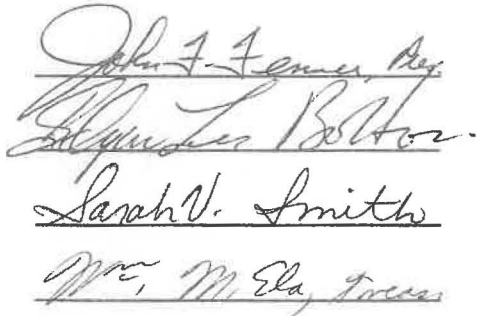 John F. Fenner, Pres.
Lee Bolton.
Sarah V. Smith
Wm. M. Ela, Treas